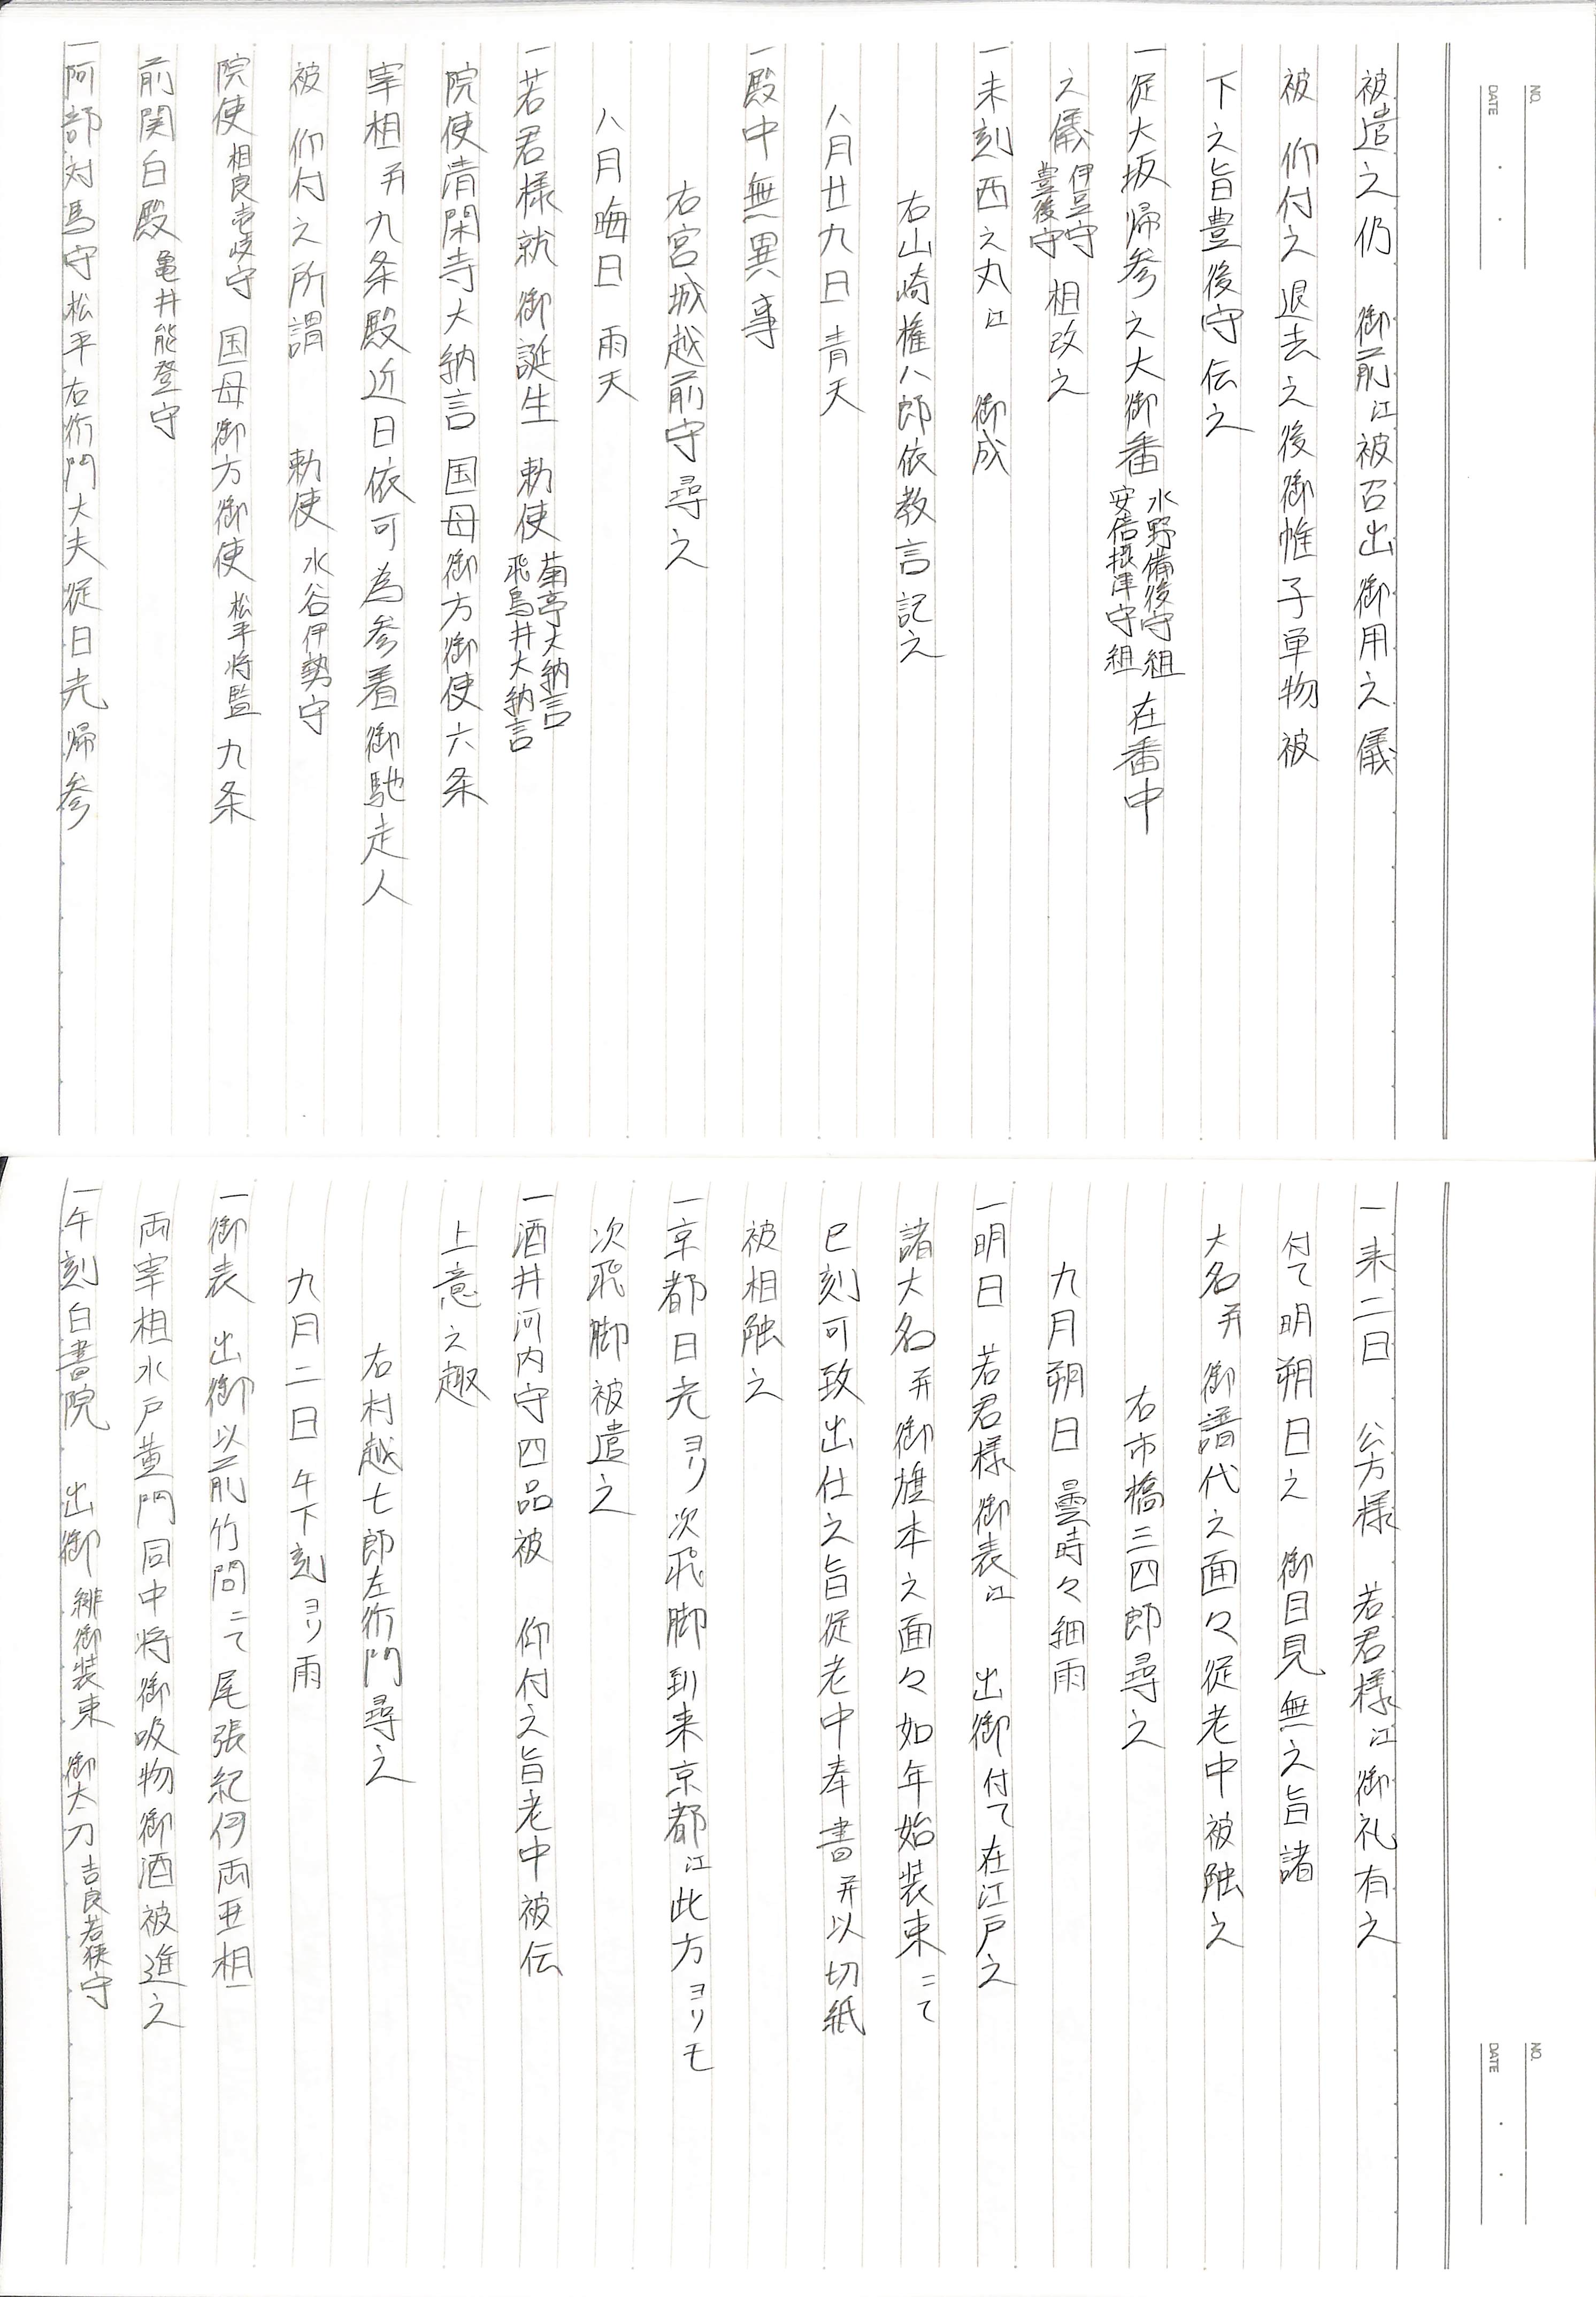 NO.
DATE
被遣之仍　御前江被召出御用之儀
被　仰付之退去之後御帷子単物被
下之旨豊後守伝之
一従大坂帰参之大御番 水野備後守組 安倍摂津守組 在番中
之儀 伊豆守 豊後守 相改之
一未刻西之丸江　御成
右山崎権八郎依教言記之
八月廿九日　青天
一殿中無異事
右宮城越前守尋之
八月晦日　雨天
一若君様就　御誕生　勅使 菊亭大納言 飛鳥井大納言
院使清閑寺大納言　国母御方御使六条
宰相并九条殿近日依可為参着御馳走人
被　仰付之所謂　　勅使 水谷伊勢守
院使 相良壱岐守　国母御方御使 松平将監　九条
前関白殿 亀井能登守
一阿部対馬守松平右衛門大夫従日光帰参
NO.
DATE
一来二日　公方様　若君様江御礼有之
付て明朔日之　御目見無之旨諸
大名并　御譜代之面々従老中被触之
右市橋三四郎尋之
九月朔日　曇時々細雨
一明日　若君様　御表江　出御付て在江戸之
諸大名并御旗本之面々如年始装束ニて
巳刻可致出仕之旨従老中奉書并以切紙
被相触之
一京都日光ヨリ次飛脚到来京都江此方ヨリモ
次飛脚被遣之
一酒井河内守四品被　仰付之旨老中被伝
上意之趣
右村越七郎左衛門尋之
九月二日　午下刻ヨリ雨
一御表　出御以前竹間ニて尾張紀伊両亜相
両宰相水戸黄門同中将御吸物御酒被進之
一午刻白書院　出御 緋御装束 御太刀 吉良若狭守